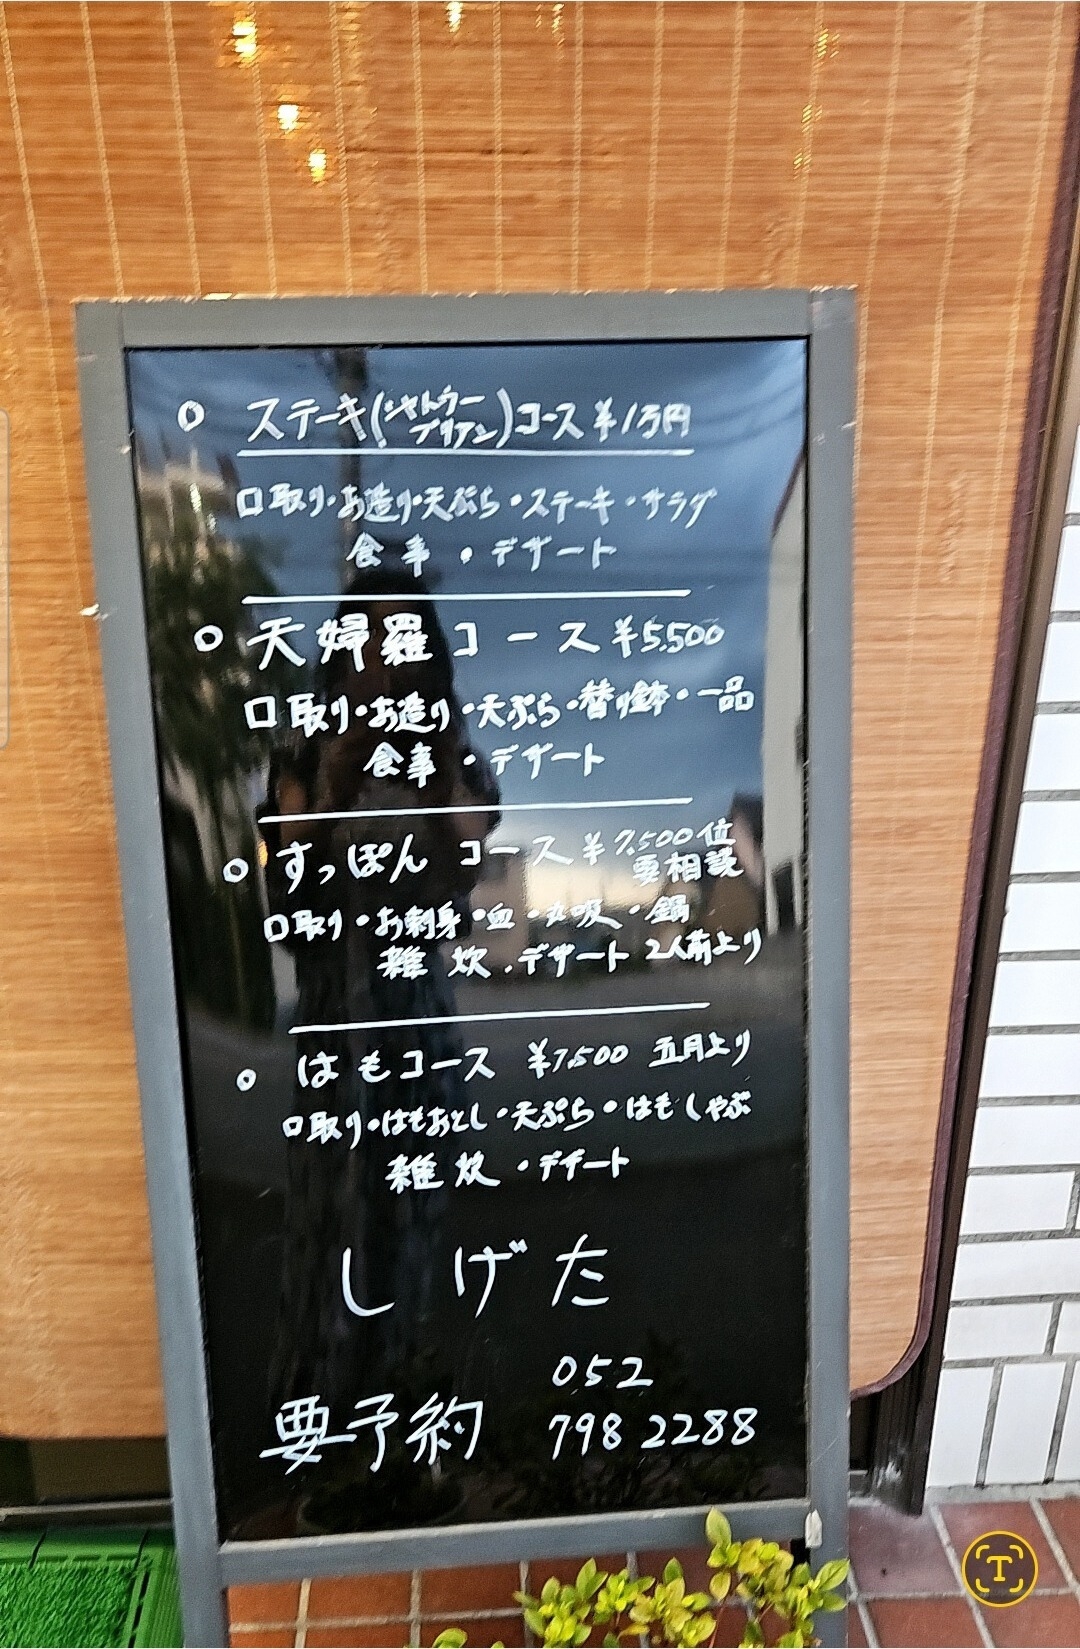 ○ ステーキ(シャトーブリアン)コース ¥1万円
口取り・お造り・天ぷら・ステーキ・サラダ
食事・デザート
○ 天婦羅コース ¥5,500
口取り・お造り・天ぷら・替り鉢・一品
食事・デザート
○ すっぽん コース ¥7,500位
要相談
口取り・お刺身・血・丸吸・鍋
雑炊・デザート 2人前より
○ はもコース ¥7,500 五月より
口取り・はもおとし・天ぷら・はもしゃぶ
雑炊・デザート
しげた
052
要予約 798 2288